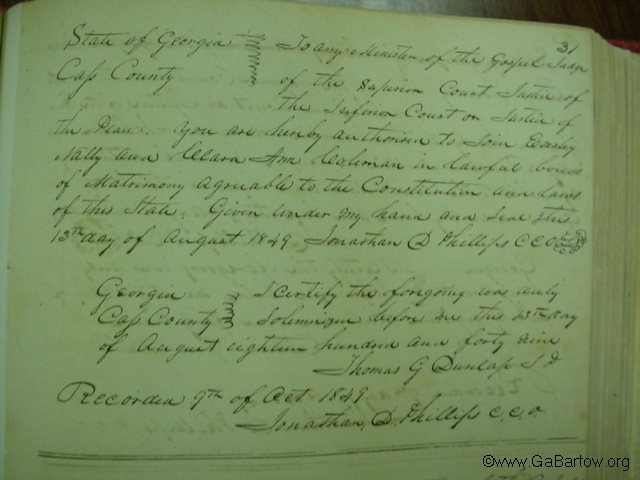 31
State of Georgia To any Minister of the Gospel Judge
Cass County of the Superior Court Justice of
the Inferior Court or Justice of
the Peace. You are hereby authorised to Join
Nally and Clara Ann Coleman in lawful bonds
of Matrimony agreeable to the Constitution and laws
of this State. Given under my hand and seal this
13th day of August 1849 Jonathan D Phillips C C O
Georgia I certify the foregoing was duly
Cass County Solemnized before me this day
of August eighteen hundred and forty nine
Thomas G Dunlap J P
Recorded 9th of Oct 1849
Jonathan, D. Phillips c. c. o.
©www.GaBartow.org